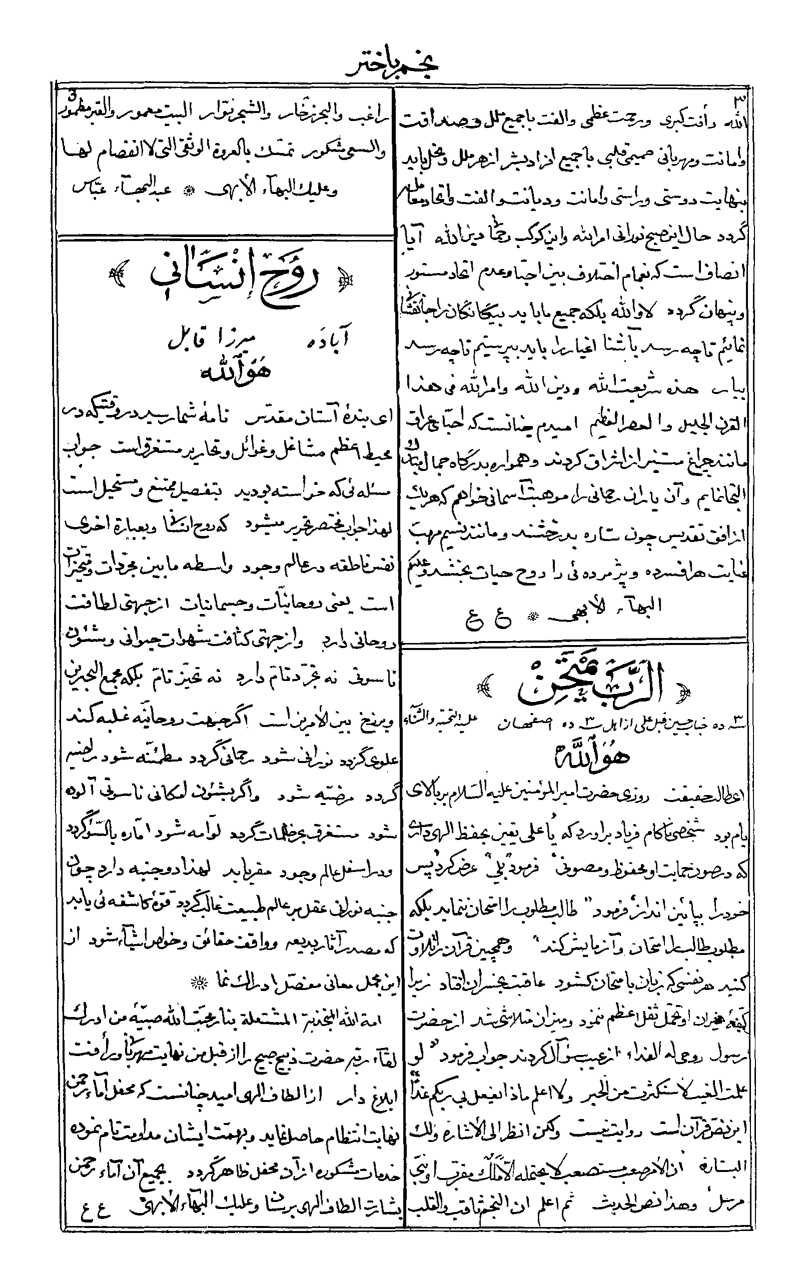 نجم باختر
۳
3
الله رأفت کبری ورحمت عظمی والفت با جمیع ملل وصداقت
وامانت ومهربانی صمیمی قلبی با جمیع افراد بشر از هر ملل ونحل باید
بنهایت دوستی وراستی وامانت ودیانت والفت واتحاد معامله
گردد حال این صبح نورانی امر الله واین کوکب رحمانی دین الله آیا
انصاف است که بغمام اختلاف بین احبا وعدم اتحاد مستور
وپنهان گردد لا والله بلکه جمیع ما باید بیگانگان را جانفشانی
نمائیم تا چه رسد بآشنا اغیار را باید بپرستیم تا چه رسد
بیار هذه شریعت الله ودین الله وامر الله فی هذا
القرن الجلیل والعصر العظیم امیدم چنانست که احبای عراق
مانند چراغ مستنیر از اشراق گردند وهمواره بدرگاه جمال مبارک
التجا نمایم وآن یاران رحمانی را موهبت آسمانی خواهم که هریک
از افق تقدیس چون ستاره بدرخشند ومانند نسیم مهب
عنایت هر افسرده وپژمرده ئی را روح حیات بخشند وعلیکم
البهآء الأبهی * ع ع
﴿ الرَّبّ یَمتَحِن ﴾
سه ده جناب حسین قبل علی از اهل سه ده اصفهان علیه التحیة والثناء
هُوَ اللّٰه
ای طالب حقیقت روزی حضرت امیر المؤمنین علیه السلام بر بالای
بام بود شخصی ناکام فریاد براورد که یا علی یقین بحفظ الهی داری
که در صون حمایت او محفوظ ومصونی فرمود "بلی" عرض کرد پس
خود را بپائین انداز فرمود "طالب مطلوب را امتحان ننماید بلکه
مطلوب طالب را امتحان وآزمایش کند" وهمچنین قرآن را تلاوت
کنید هر نفسی که زبان بامتحان گشود عاقبت بخسران افتاد زیرا
کفهٔ میزان او تحمل ثقل اعظم ننمود ومیزان متلاشی شد از حضرت
رسول روحی له الفداء از غیب سؤال کردند جواب فرمود "لو
علمت الغیب لاستکثرت من الخیر ولا اعلم ماذا یفعل بی ربکم غدا"
این نص قرآن است روایت نیست ولکن انظر الی الأشارة وتلک
البشارة "ان الأمر صعب مستصعب لا یحتمله الا ملک مقرب او نبی
مرسل" وهذا نص الحدیث ثم اعلم ان النجم ثاقب والقلب
راغب والبحر زخّار والشیم نوار البیت معمور والقبر مطمور
والسعی مشکور تمسّک بالعروة الوثقی التی لا انفصام لها
وعلیک البهآء الأبهی * عبد البهآء عبّاس
﴿ رُوْحِ اِنْسَانی ﴾
آباده میرزا قابل
هُوَ الله
ای بندهٔ آستان مقدّس نامهٔ شما رسید در وقتیکه در
محیط اعظم مشاغل وغوائل وتحاریر مستغرق است جواب
مسئله ئی که خواسته بودید بتفصیل ممتنع ومستحیل است
لهذا جواب مختصر تحریر میشود که روح انسانی وبعبارة اخری
نفس ناطقه در عالم وجود واسطه ما بین مجردات ومتحیزات
است یعنی روحانیّات وجسمانیات از جهتی لطافت
روحانی دارد وازجهتی کثافت شهوات حیوانی وشئون
ناسوتی نه تجرّد تام دارد نه تحیّز تام بلکه مجمع البحرین
وبرزخ بین الأمرین است اگر جهت روحانیّه غلبه کند
علوی گردد نورانی شود رحمانی گردد مطمئنّه شود راضیه
گردد مرضیّه شود واگر بشئون امکانی ناسوتی آلوده
شود مستغرق بحر ظلمات گردد لوّامه شود امّاره بالسّوء گردد
ودر اسفل عالم وجود مقر یابد لهذا دو جنبه دارد چون
جنبه نورانی عقل بر عالم طبیعت غالب گردد قوّهٔ کاشفه ئی یابد
که مصدر آثار بدیعه وواقف حقائق وخواص اشیآء شود از
این مجمل معانی مفصّل ادراک نما *
امة الله المنجذبة المشتعلة بنار محبّت الله صبیّهٔ من ادرک
لقآء ربه حضرت ذبیح صبیح را از قبل من نهایت مهربانی ورأفت
ابلاغ دار از الطاف الهی امید چنانست که محفل امآء رحمن
نهایت انتظام حاصل نماید وبهمّت ایشان مداومت تام نموده
خدمات مشکوره از آن محفل ظاهر گردد بجمیع آن امآء رحمن
بشارت الطاف الهی برسان وعلیک البهآء الأبهی ع ع